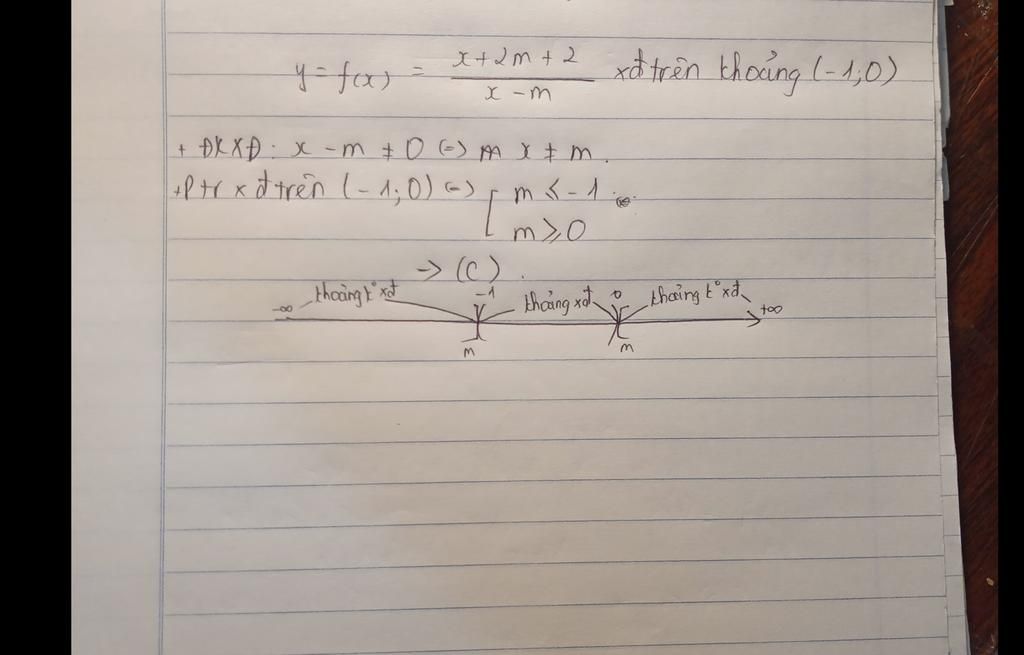 y = f(x) = \frac{x+2m+2}{x-m} xđ trên khoảng (-1;0)
+ ĐKXĐ: x - m ≠ 0 (=) x ≠ m.
+Ptr xđ trên (-1;0) (=) [ m ≤ -1
m ≥ 0
-> (C).
-∞ khoảng k° xđ -1 khoảng xđ 0 khoảng k° xđ +∞
m m